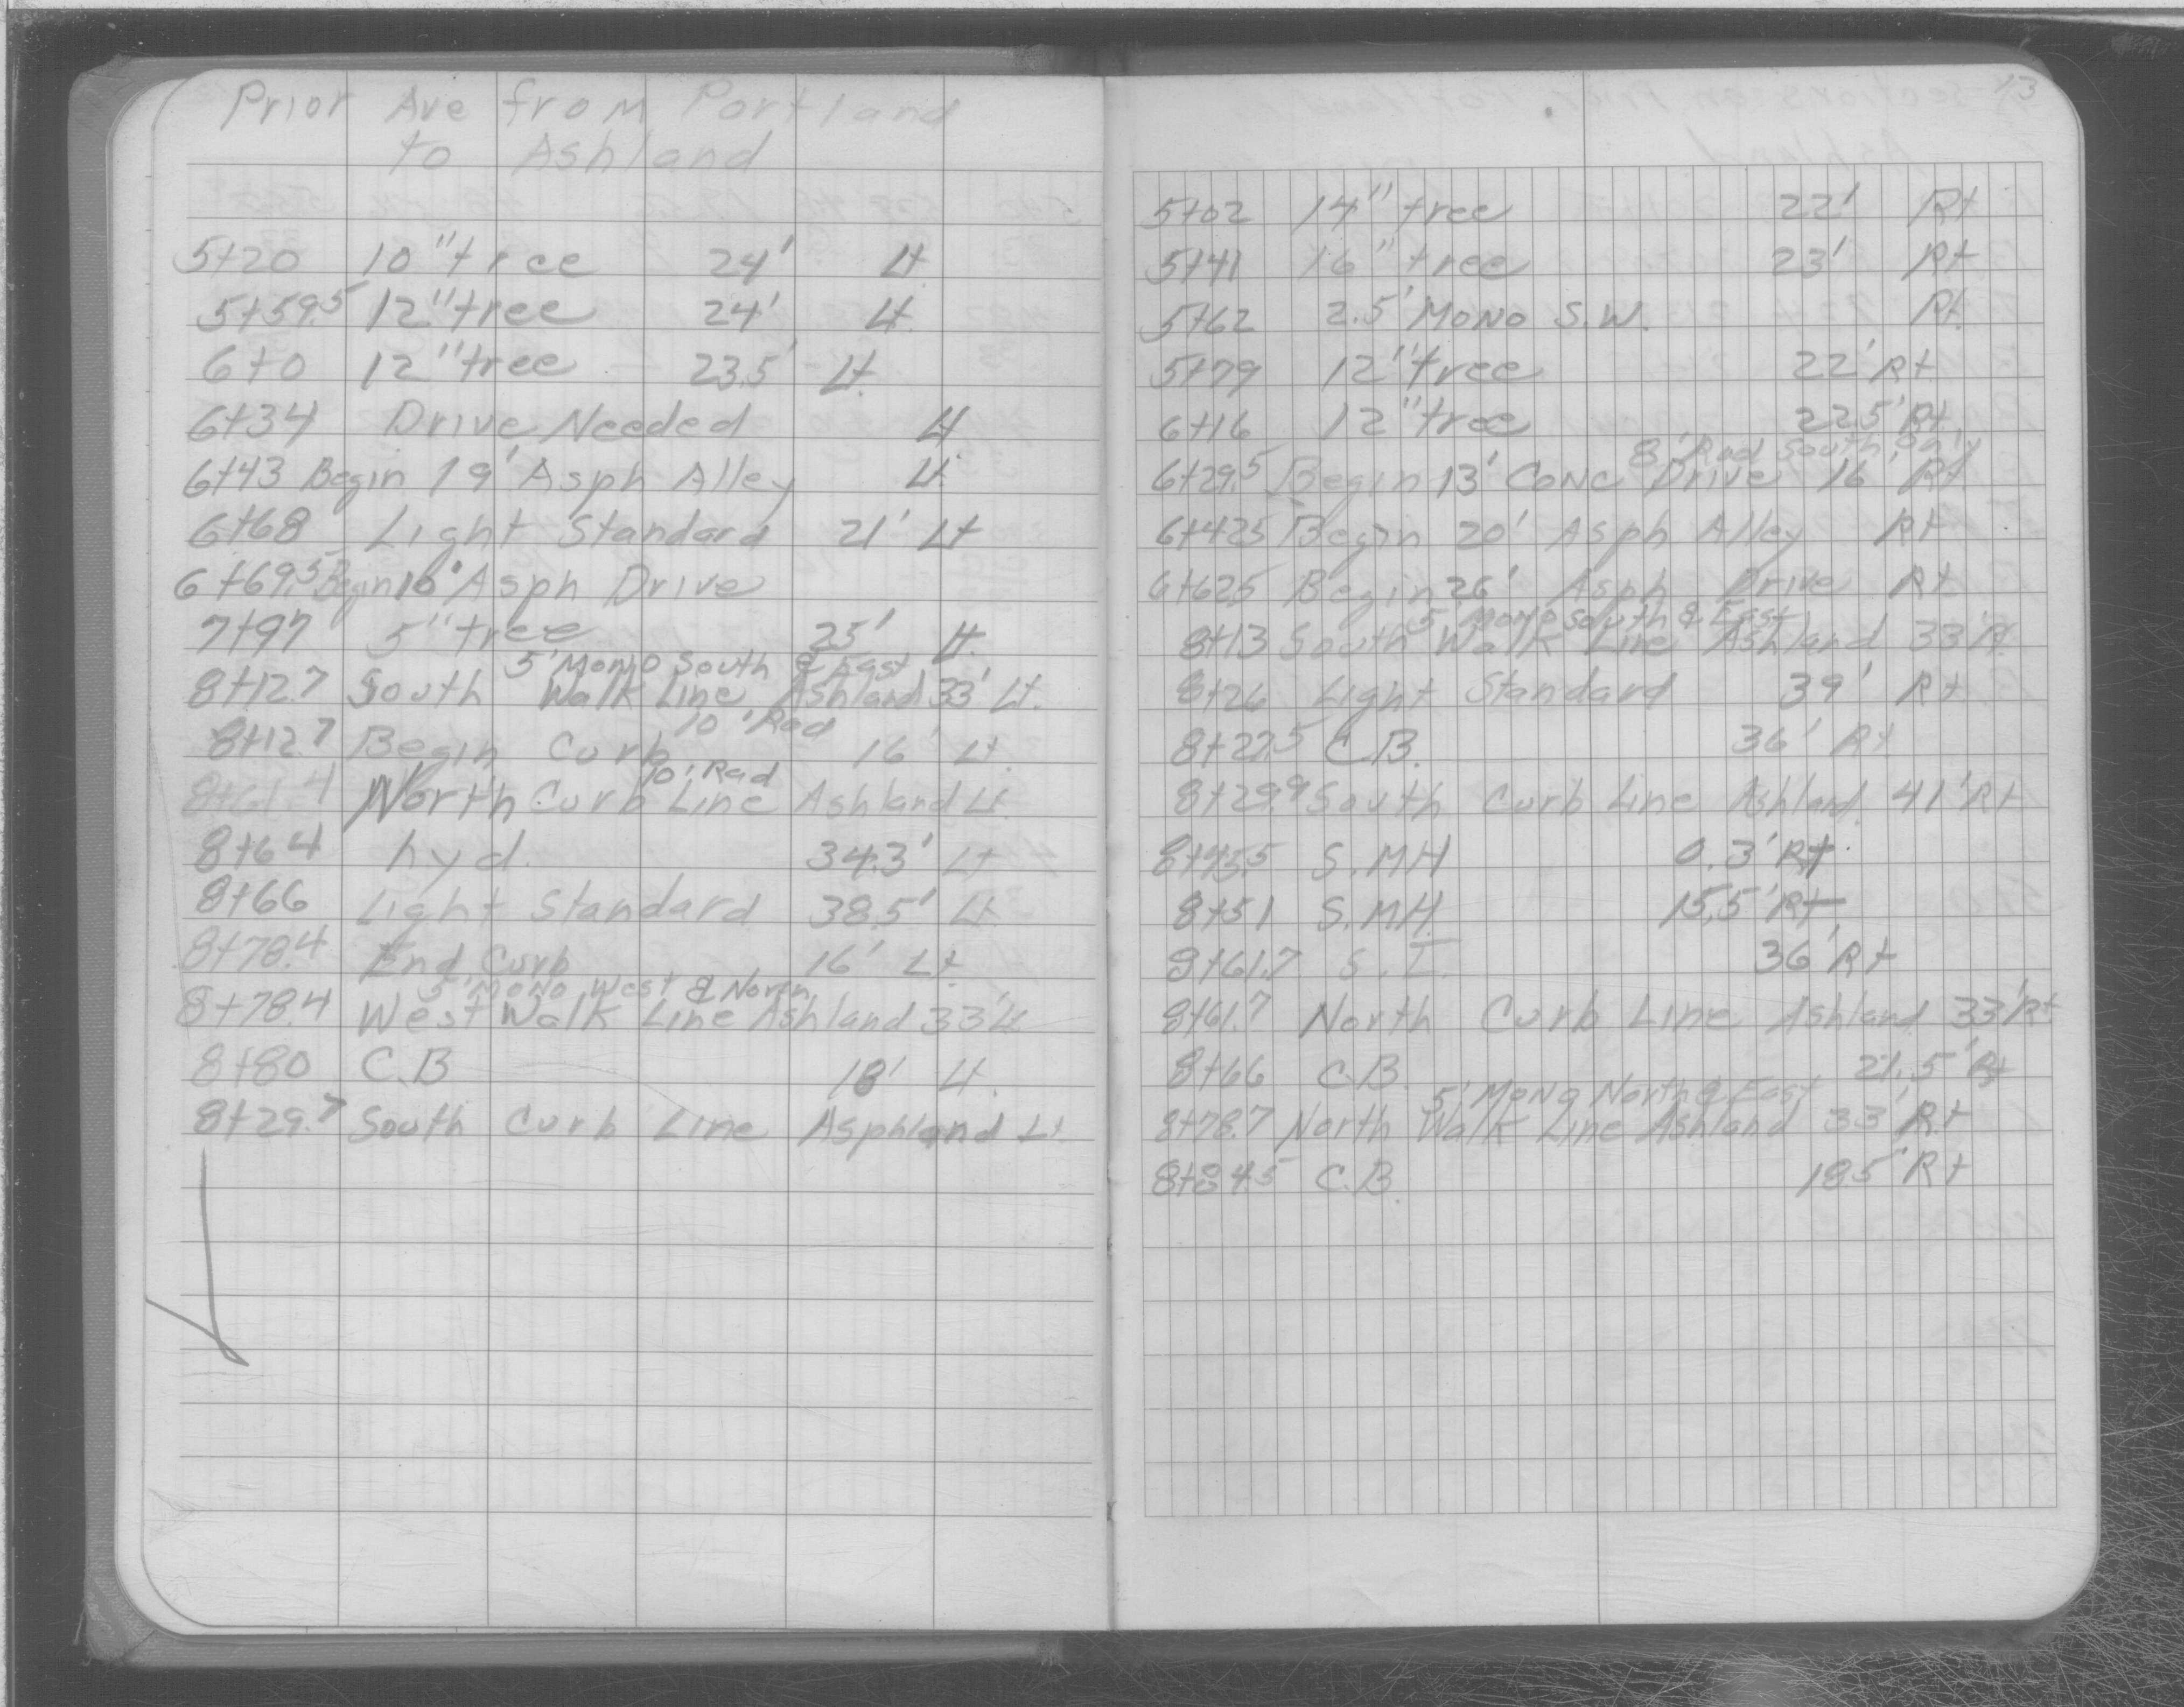 Prior Ave from Portland
to Ashland
5+20 10" tree 24' Lt
5+59.5 12" tree 24' Lt.
6+0 12" tree 23.5' Lt.
6+34 Drive Needed Lt
6+43 Begin 19' Asph Alley Lt
6+68 Light Standard 21' Lt
6+69.5 Begin 10' Asph Drive
7+97 5" tree 25' Lt.
5' Mono South & East
8+12.7 South Walk Line Ashland 33' Lt.
10' Rad
8+12.7 Begin Curb 16' Lt.
10' Rad
8+61.4 North Curb Line Ashland Lt.
8+64 hyd. 34.3' Lt
8+66 Light Standard 38.5' Lt.
8+78.4 End Curb 16' Lt.
5' Mono West & North
8+78.4 West Walk Line Ashland 33' Lt
8+80 C.B 18' Lt.
8+29.7 South Curb Line Asphland Lt.
13
5+02 14" tree 22' Rt
5+41 16" tree 23' Rt
5+62 2.5' Mono S.W. Rt.
5+79 12" tree 22' Rt
6+16 12" tree 22.5' Rt.
8' Rad South
6+29.5 Begin 13' Conc Drive 16' Rt
6+42.5 Begin 20' Asph Alley Rt
6+62.5 Begin 26' Asph Drive Rt
5' Mono South & East
8+13 South Walk Line Ashland 33' Rt
8+26 Light Standard 39' Rt
8+27.5 C.B. 36' Rt
8+29.9 South Curb Line Ashland 41' Rt
8+45.5 S.MH 0.3' Rt
8+51 S.MH. 15.5' Rt
8+61.7 S.I. 36' Rt
8+61.7 North Curb Line Ashland 33' Rt
8+66 C.B. 21.5' Rt
5' Mono North & East
8+78.7 North Walk Line Ashland 33' Rt
8+84.5 C.B. 18.5' Rt